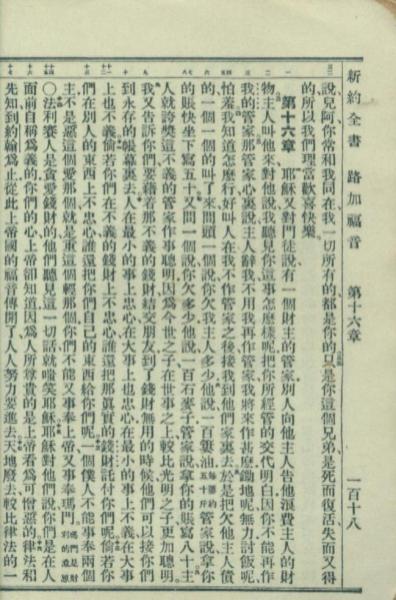 新約全書 路加福音 第十六章 一百十八
說兒阿你常和我同在我一切所有的都是你的只是你這個兄弟是死而復活失而又得
的所以我們理當歡喜快樂
第十六章 耶穌又對門徒說有一個財主的管家別人向他主人告他浪費主人的財
物主人叫他來對他說我聽見你這事怎麼樣呢把你所經管的交代明白因你不能再作
我的管家那管家心裏說主人辭我不用我再作管家我將來作甚麼鋤地呢無力討飯呢
怕羞我知道怎麼行好叫人在我不作管家之後接我到他們家裏去於是把欠他主人債
的一個一個的叫了來問頭一個說你欠我主人多少他說一百簍油每簍約五十斤管家說拿你
的賬快坐下寫五十又問一個說你欠多少他說一百石麥子管家說拿你的賬寫八十主
人就誇獎這不義的管家作事聰明因爲今世之子在世事之上較比光明之子更加聰明
我又告訴你們要藉着那不義的錢財結交朋友到了錢財無用的時候他們可以接你們
到永存的帳幕裏去人在最小的事上忠心在大事上也忠心在最小的事上不義在大事
上也不義倘若你們在不義的錢財上不忠心誰還把那眞實的錢財託付你們呢倘若你
們在別人的東西上不忠心誰還把你們自己的東西給你們呢一個僕人不能事奉兩個
主不是惡這個愛那個就是重這個輕那個你們不能又事奉上帝又事奉瑪門瑪門是財利的意思
〇法利賽人是貪愛錢財的他們聽見這一切話就嗤笑耶穌耶穌對他們說你們是在人
面前自稱爲義的你們的心上帝卻知道因爲人所尊貴的是上帝看爲可憎惡的律法和
先知到約翰爲止從此上帝國的福音傳開了人人努力要進去天地廢去較比律法的一